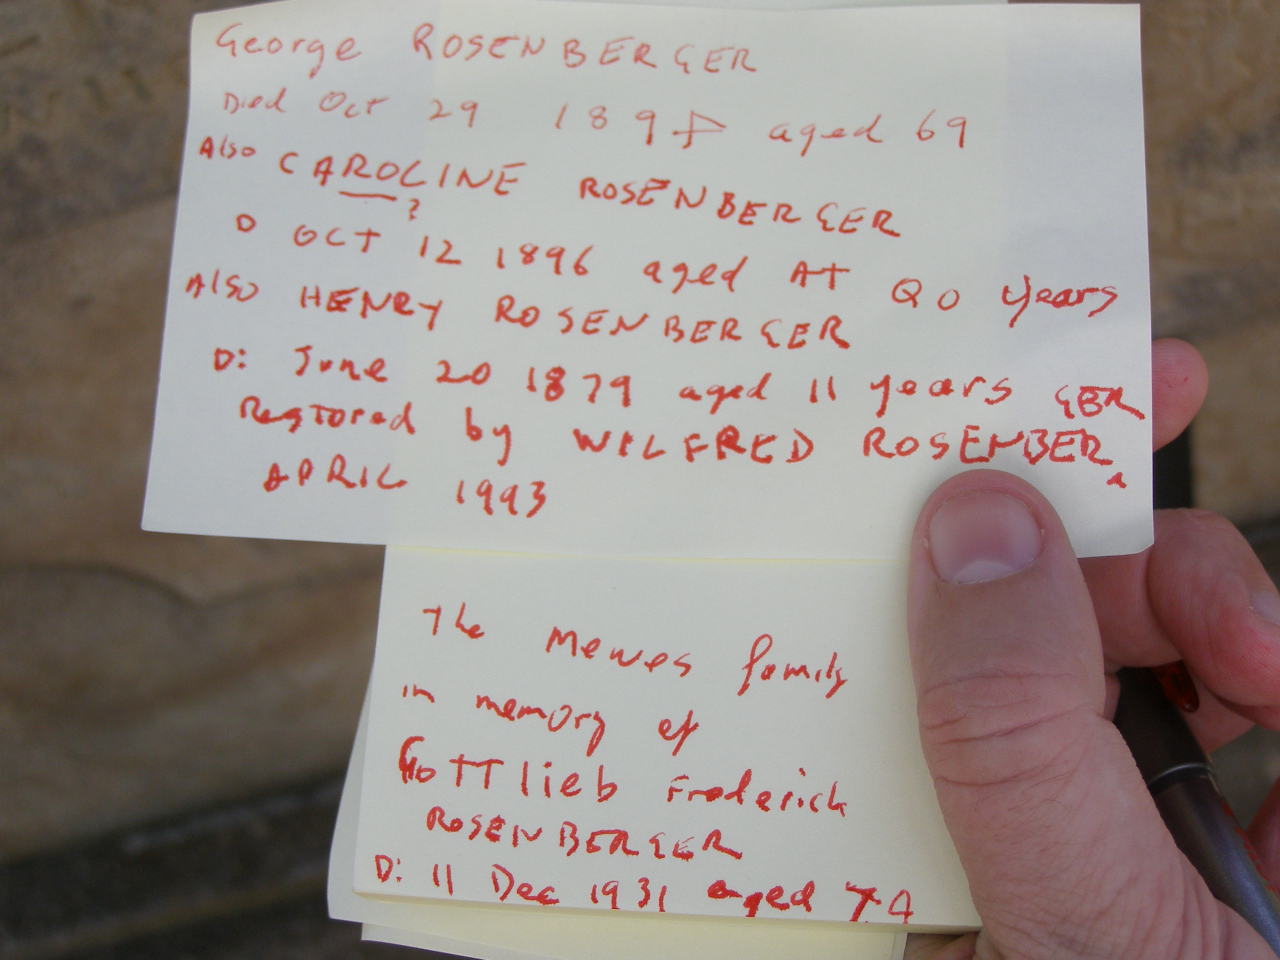 George ROSENBERGER
Died Oct 29 189 aged 69
Also CAROLINE ROSENBERGER
?
D OCT 12 1896 aged AT Q0 years
Also HENRY ROSENBERGER
D: June 20 1879 aged 11 years
Restored by WILFRED ROSENBERGER
APRIL 1993
The Mewes family
in memory of
Gottlieb Frederick
ROSENBERGER
D: 11 Dec 1931 aged 74